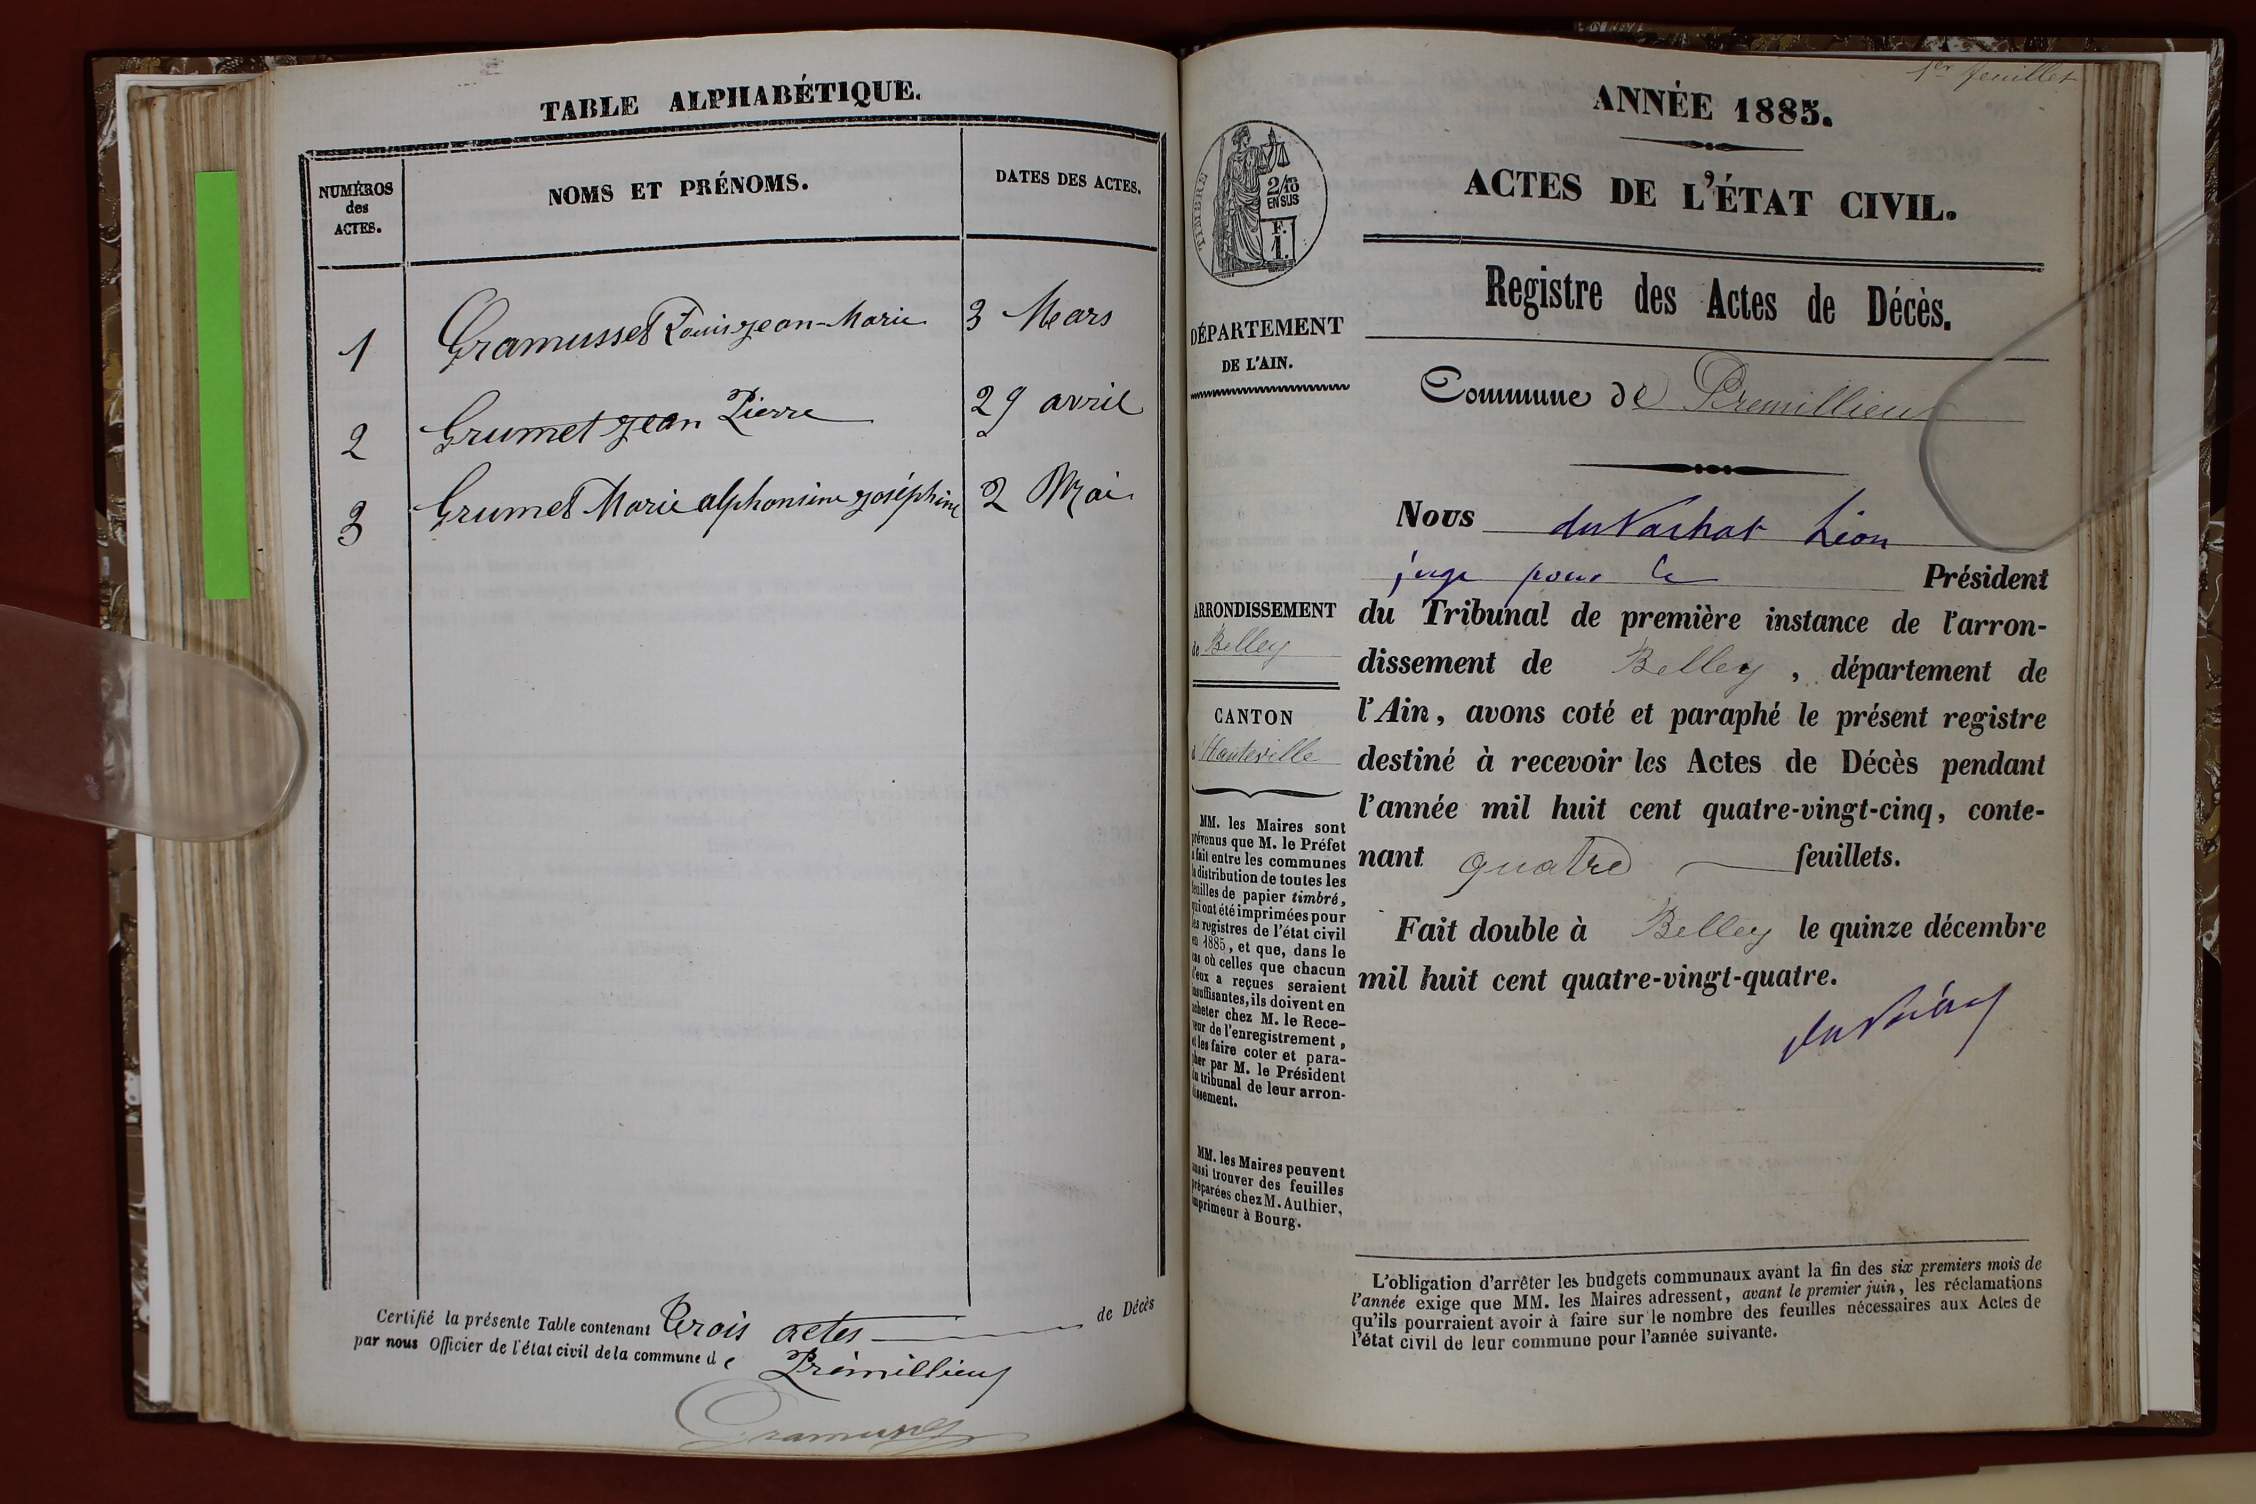 TABLE ALPHABÉTIQUE.
NUMÉROS
des
ACTES.
NOMS ET PRÉNOMS.
DATES DES ACTES.
1 Gramusset Louis jean-Marie 3 Mars
2 Grumet jean Pierre 29 avril
3 Grumet Marie alphonsine joséphine 2 Mai
Certifié la présente Table contenant trois actes de Décès
par nous Officier de l'état civil de la commune de Prémillieu
Gramusset
1er feuillet
ANNÉE 1885.
ACTES DE L'ÉTAT CIVIL.
TIMBRE
2/10
EN SUS
F.
1.
Registre des Actes de Décès.
DÉPARTEMENT
DE L'AIN.
Commune de Prémillieu
Nous Léon
juge pour le Président
du Tribunal de première instance de l'arron-
dissement de Belley, département de
l'Ain, avons coté et paraphé le présent registre
destiné à recevoir les Actes de Décès pendant
l'année mil huit cent quatre-vingt-cinq, conte-
nant quatre feuillets.
Fait double à Belley le quinze décembre
mil huit cent quatre-vingt-quatre.
ARRONDISSEMENT
de Belley
CANTON
d'Hauteville
MM. les Maires sont
prévenus que M. le Préfet
a fait entre les communes
la distribution de toutes les
feuilles de papier timbré,
qui ont été imprimées pour
les registres de l'état civil
en 1885, et que, dans le
cas où celles que chacun
d'eux a reçues seraient
insuffisantes, ils doivent en
acheter chez M. le Rece-
veur de l'enregistrement,
et les faire coter et para-
pher par M. le Président
du tribunal de leur arron-
dissement.
MM. les Maires peuvent
aussi trouver des feuilles
préparées chez M. Authier,
imprimeur à Bourg.
L'obligation d'arrêter les budgets communaux avant la fin des six premiers mois de
l'année exige que MM. les Maires adressent, avant le premier juin, les réclamations
qu'ils pourraient avoir à faire sur le nombre des feuilles nécessaires aux Actes de
l'état civil de leur commune pour l'année suivante.